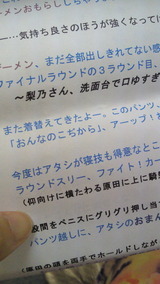 ー…気持ち良さのほうが強くなって
ーメン、まだ全部出しきれてない感
ファイナルラウンドの３ラウンド目、
～梨乃さん、洗面台で口ゆすぎ
また着替えてきたよー。このパンツ、
「おんなのこぢから」、アーップ！お
今度はアタシが寝技も得意なところ
ラウンドスリー、ファイト！カー
（仰向けに横たわる原田の上に騎
股間をペニスにグリグリ押し当て
パンツ越しに、アタシのおまん
の頭を両手でホールドしなが